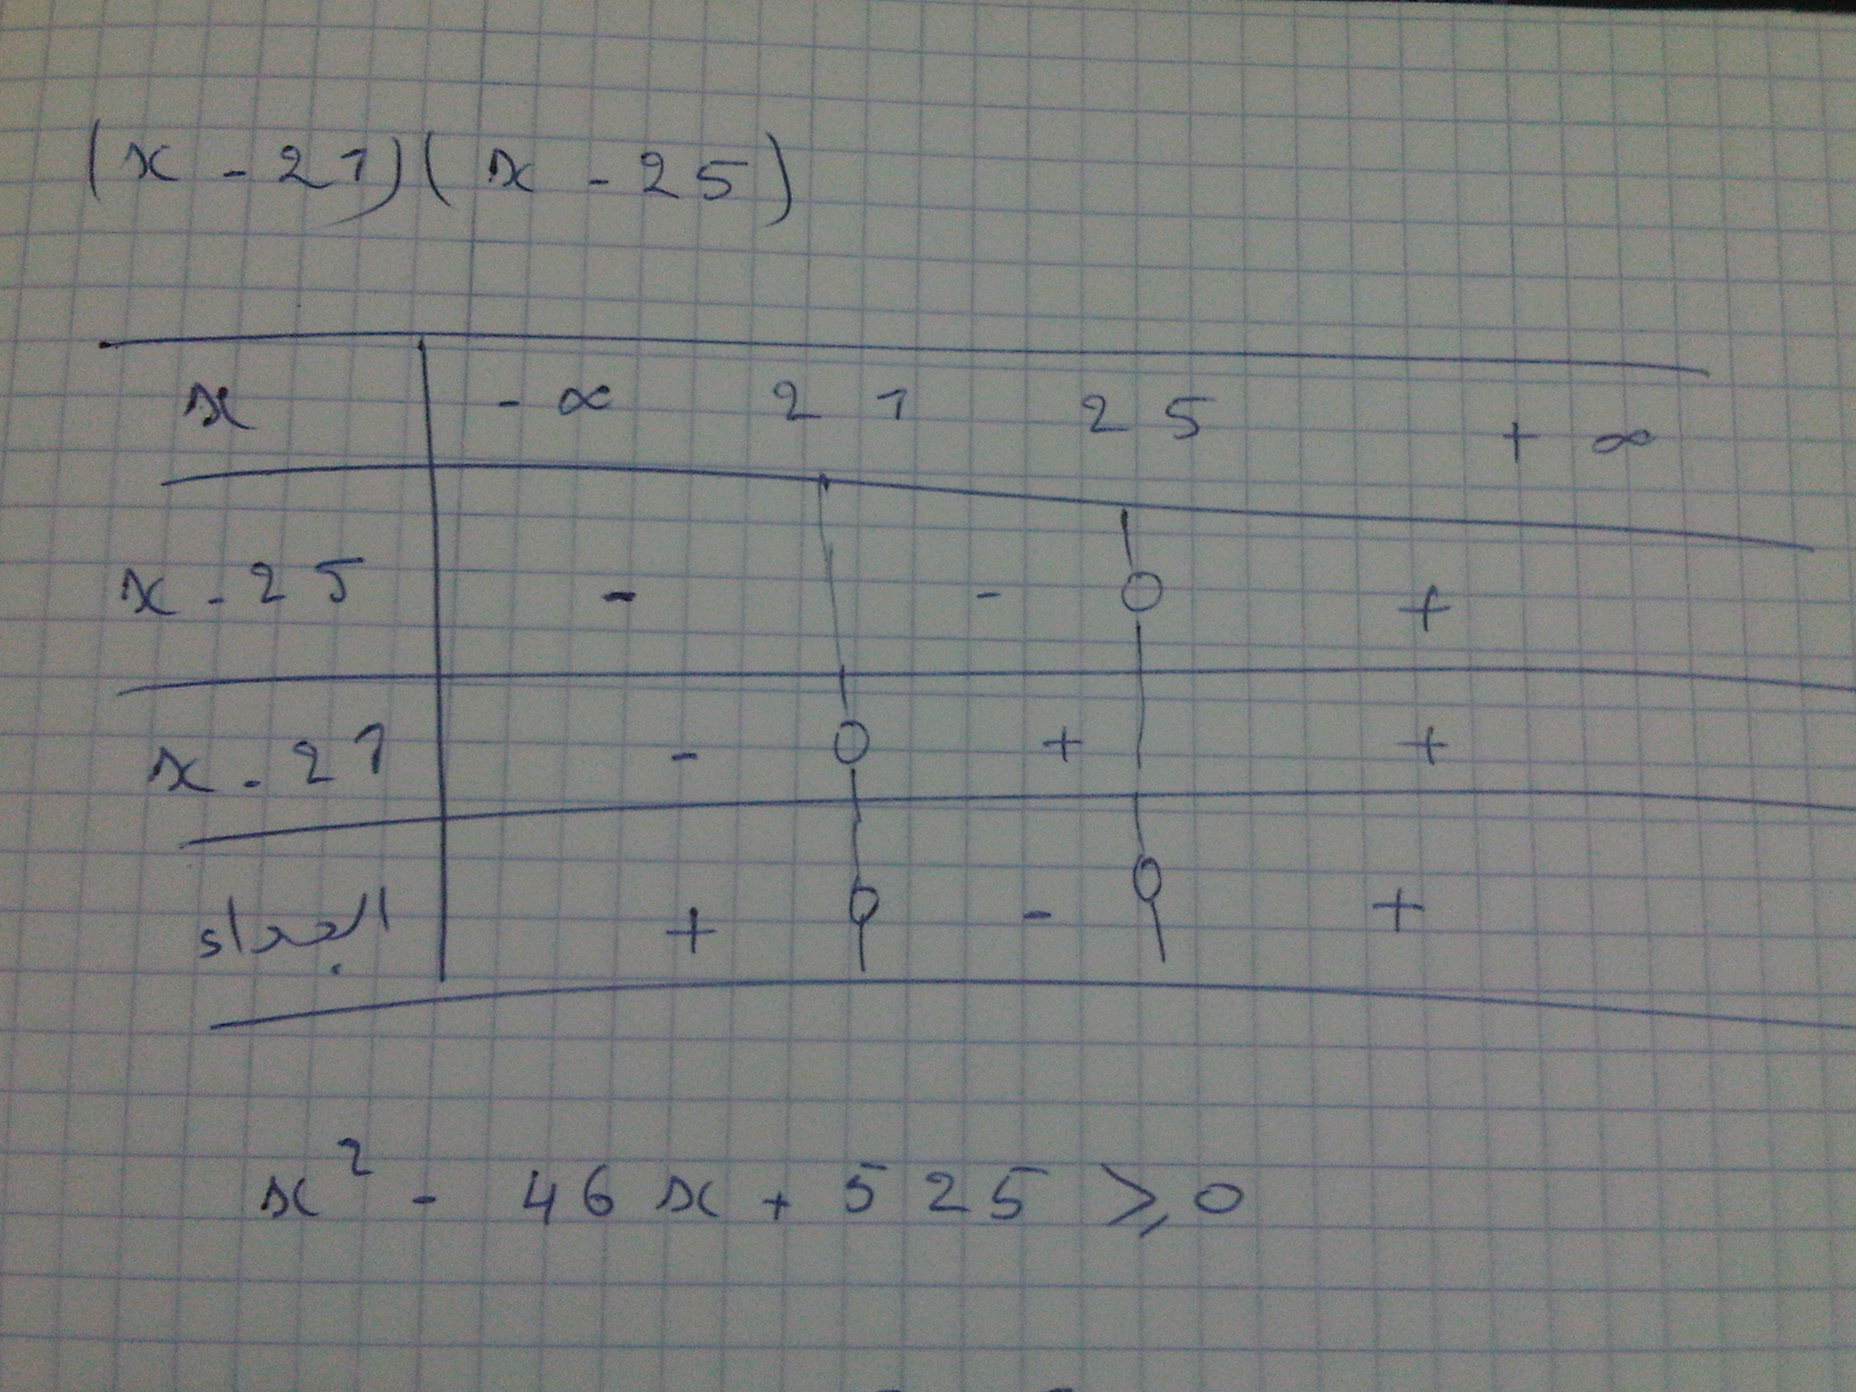 (x - 21)(x - 25)
x - ∞ 21 25 + ∞
x - 25 - - 0 +
x - 21 - 0 + +
الجداء + 0 - 0 +
x² - 46x + 525 ⩾ 0